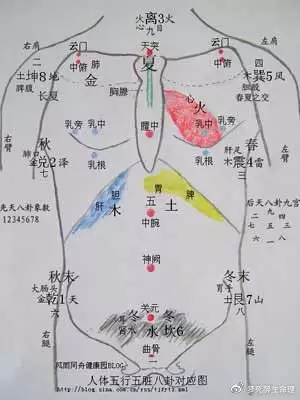 火离3火
心九目
右肩
云门
肺
天突
云门
左肩
二
中俯
夏
中俯
四
土坤8地
金
木巽5风
脾腹
胆股
长夏
胸膺
春夏之交
心
火
右臂
左臂
乳旁
乳中
膻中
乳中
乳旁
秋
春
肺口
肝足
金兑2泽
乳根
乳根
木震4雷
七
三
先天八卦象数
12345678
胆
肝
木
胃
脾
五
土
中腕
后天八卦九宫
四九二
三五七
八一六
神阙
秋末
冬末
大肠头
胃手
金乾1天
土艮7山
六
八
关元
冬
冬
耳
肾水
水
坎6
曲骨
一
右腿
左腿
风雨同舟健康园BLOG
人体五行五脏八卦对应图